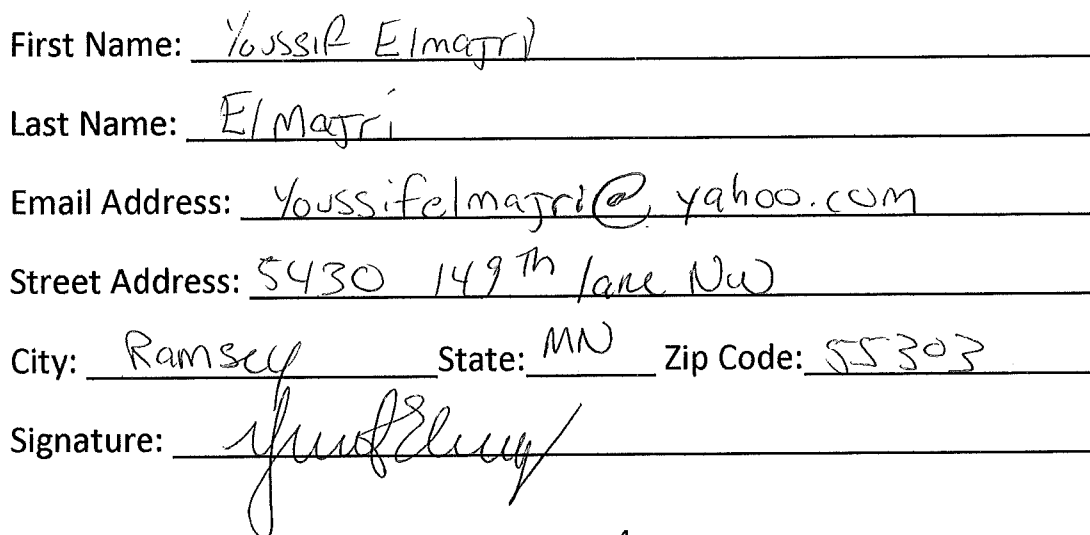 First Name: Youssif Elmajri
Last Name: Elmajri
Email Address: Youssifelmajri@yahoo.com
Street Address: 5430 149th lane NW
City: Ramsey State: MN Zip Code: 55303
Signature: